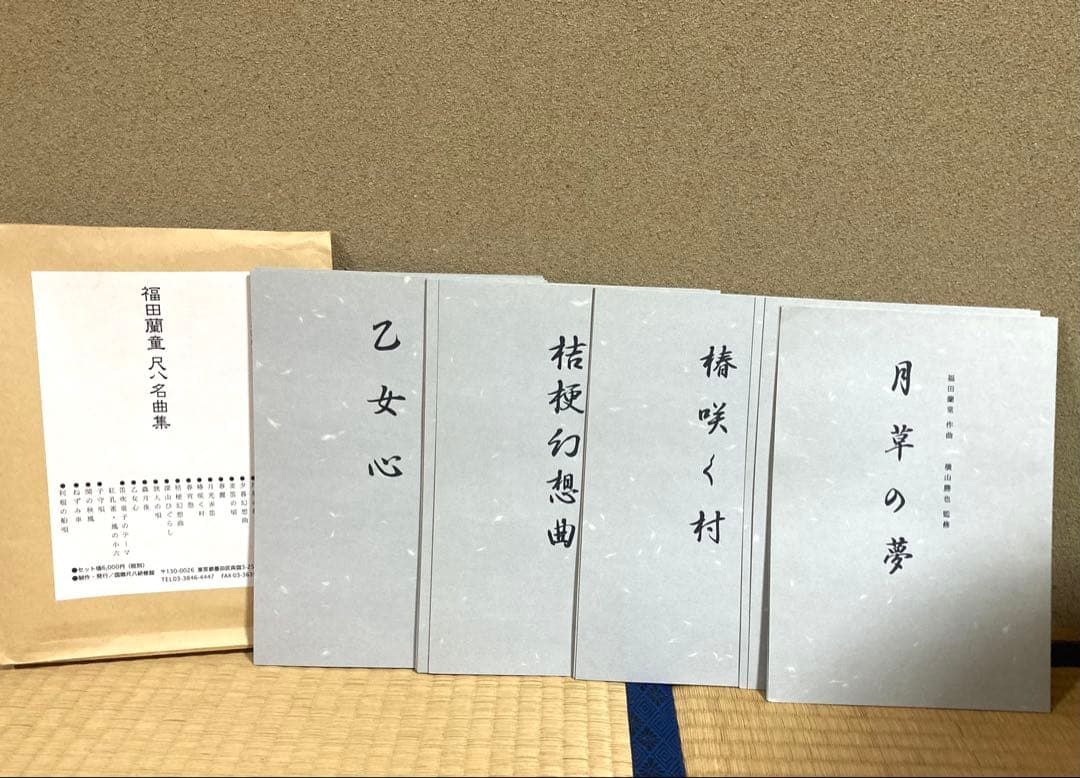 福田蘭童 尺八名曲集
●夕暮幻想曲
●麦笛の頃
●春麗
●月光弄笛
●椿咲く村
●春宵怨
●桔梗幻想曲
●深山ひぐらし
●旅人の唄
●蟲月夜
●乙女心
●笛吹童子のテーマ
紅孔雀・風の小六
●子守唄
●関の秋風
●ねずみ車
●利根の船唄
●セット価6,000円(税別)
●制作・発行/国際尺八研修館 〒130-0026 東京都墨田区両国3-25
TEL03-3846-4447 FAX 03-363
乙女心
桔梗幻想曲
椿咲く村
福田蘭童 作曲 横山勝也 監修
月草の夢